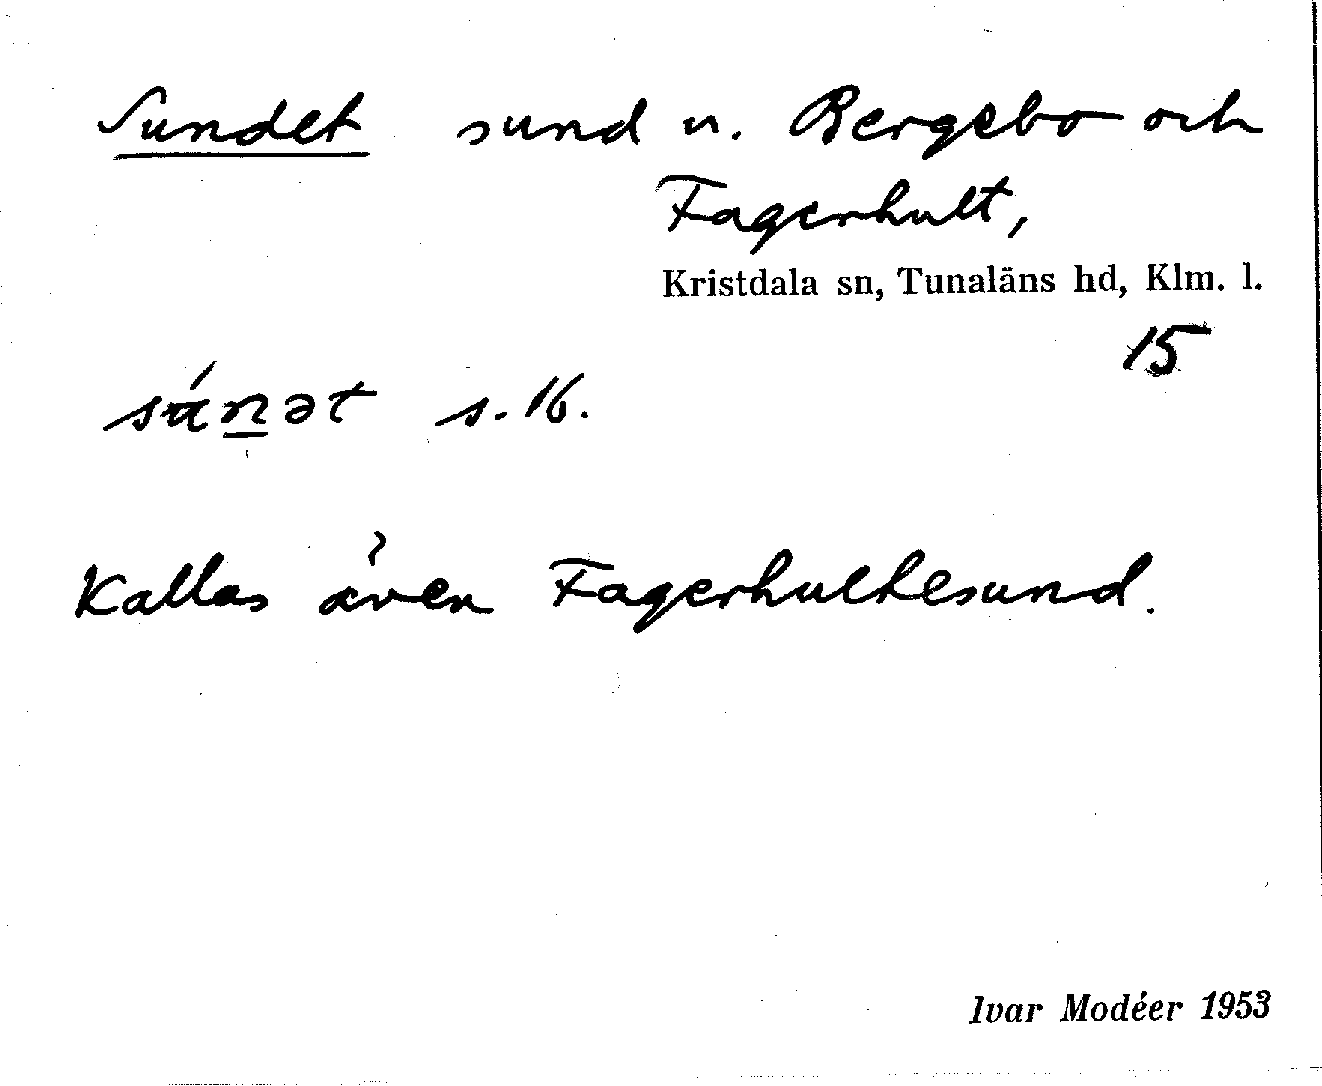 Sundet sund n. Bergebo och
Fagerhult,
Kristdala sn, Tunaläns hd, Klm. l.
15
s. 16.
Kallas även Fagerhultesund.
Ivar Modéer 1953